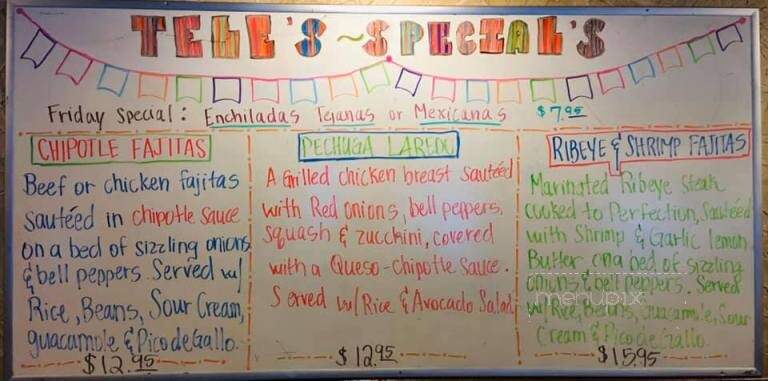 TELE'S ~ SPECIAL'S
Friday Special: Enchiladas Tejanas or Mexicanas $7.95
CHIPOTLE FAJITAS
Beef or chicken fajitas
sautéed in chipotle sauce
on a bed of sizzling onions
& bell peppers. Served w/
Rice, Beans, Sour Cream,
guacamole & Pico de Gallo.
$12.95
PECHUGA LAREDO
A Grilled chicken breast sautéed
with Red onions, bell peppers,
squash & zucchini, covered
with a Queso-chipotle sauce.
Served w/ Rice & Avocado Salad
$12.95
RIBEYE & SHRIMP FAJITAS
Marinated Ribeye steak
cooked to Perfection, Sautéed
with Shrimp & Garlic lemon
Butter on a bed of sizzling
onions & bell peppers. Served
w/ Rice, Beans, Guacamole, Sour
Cream & Pico de Gallo.
$15.95
menupix